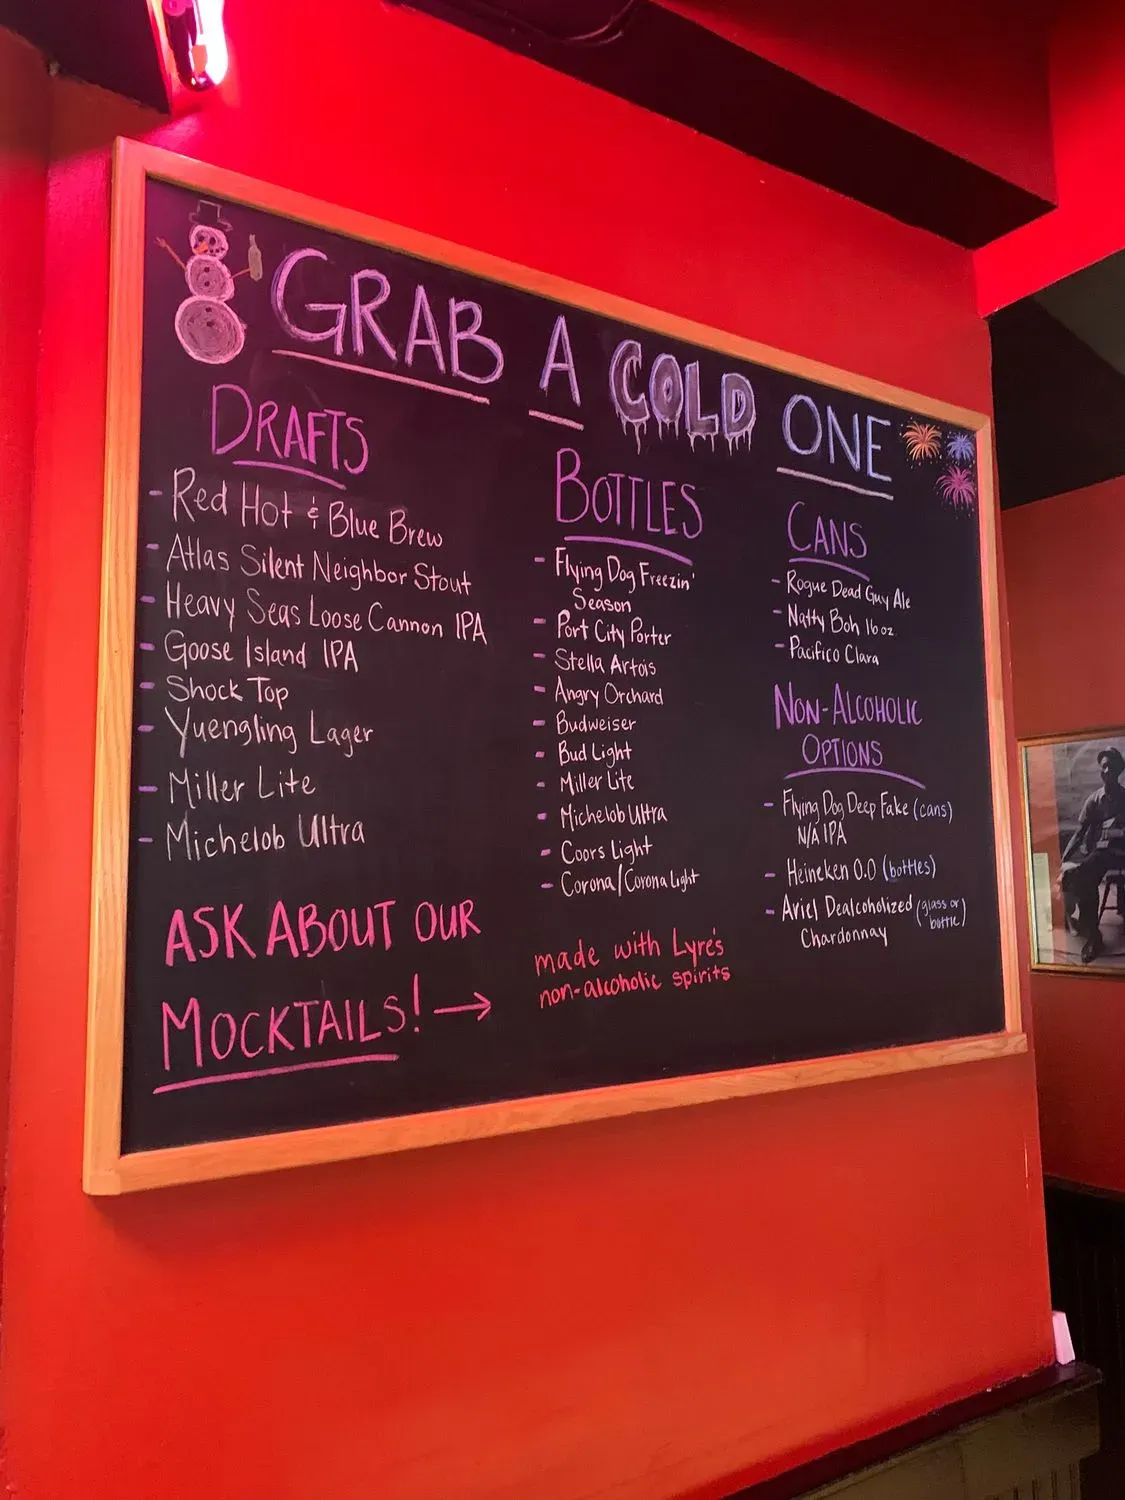 GRAB A COLD ONE
DRAFTS
- Red Hot & Blue Brew
- Atlas Silent Neighbor Stout
- Heavy Seas Loose Cannon IPA
- Goose Island IPA
- Shock Top
- Yuengling Lager
- Miller Lite
- Michelob Ultra
ASK ABOUT OUR
MOCKTAILS! →
BOTTLES
- Flying Dog Freezin'
Season
- Port City Porter
- Stella Artois
- Angry Orchard
- Budweiser
- Bud Light
- Miller Lite
- Michelob Ultra
- Coors Light
- Corona/Corona Light
made with Lyre's
non-alcoholic spirits
CANS
- Rogue Dead Guy Ale
- Natty Boh 16oz
- Pacifico Clara
NON-ALCOHOLIC
OPTIONS
- Flying Dog Deep Fake (cans)
N/A IPA
- Heineken 0.0 (bottles)
- Ariel Dealcoholized (glass or
bottle)
Chardonnay